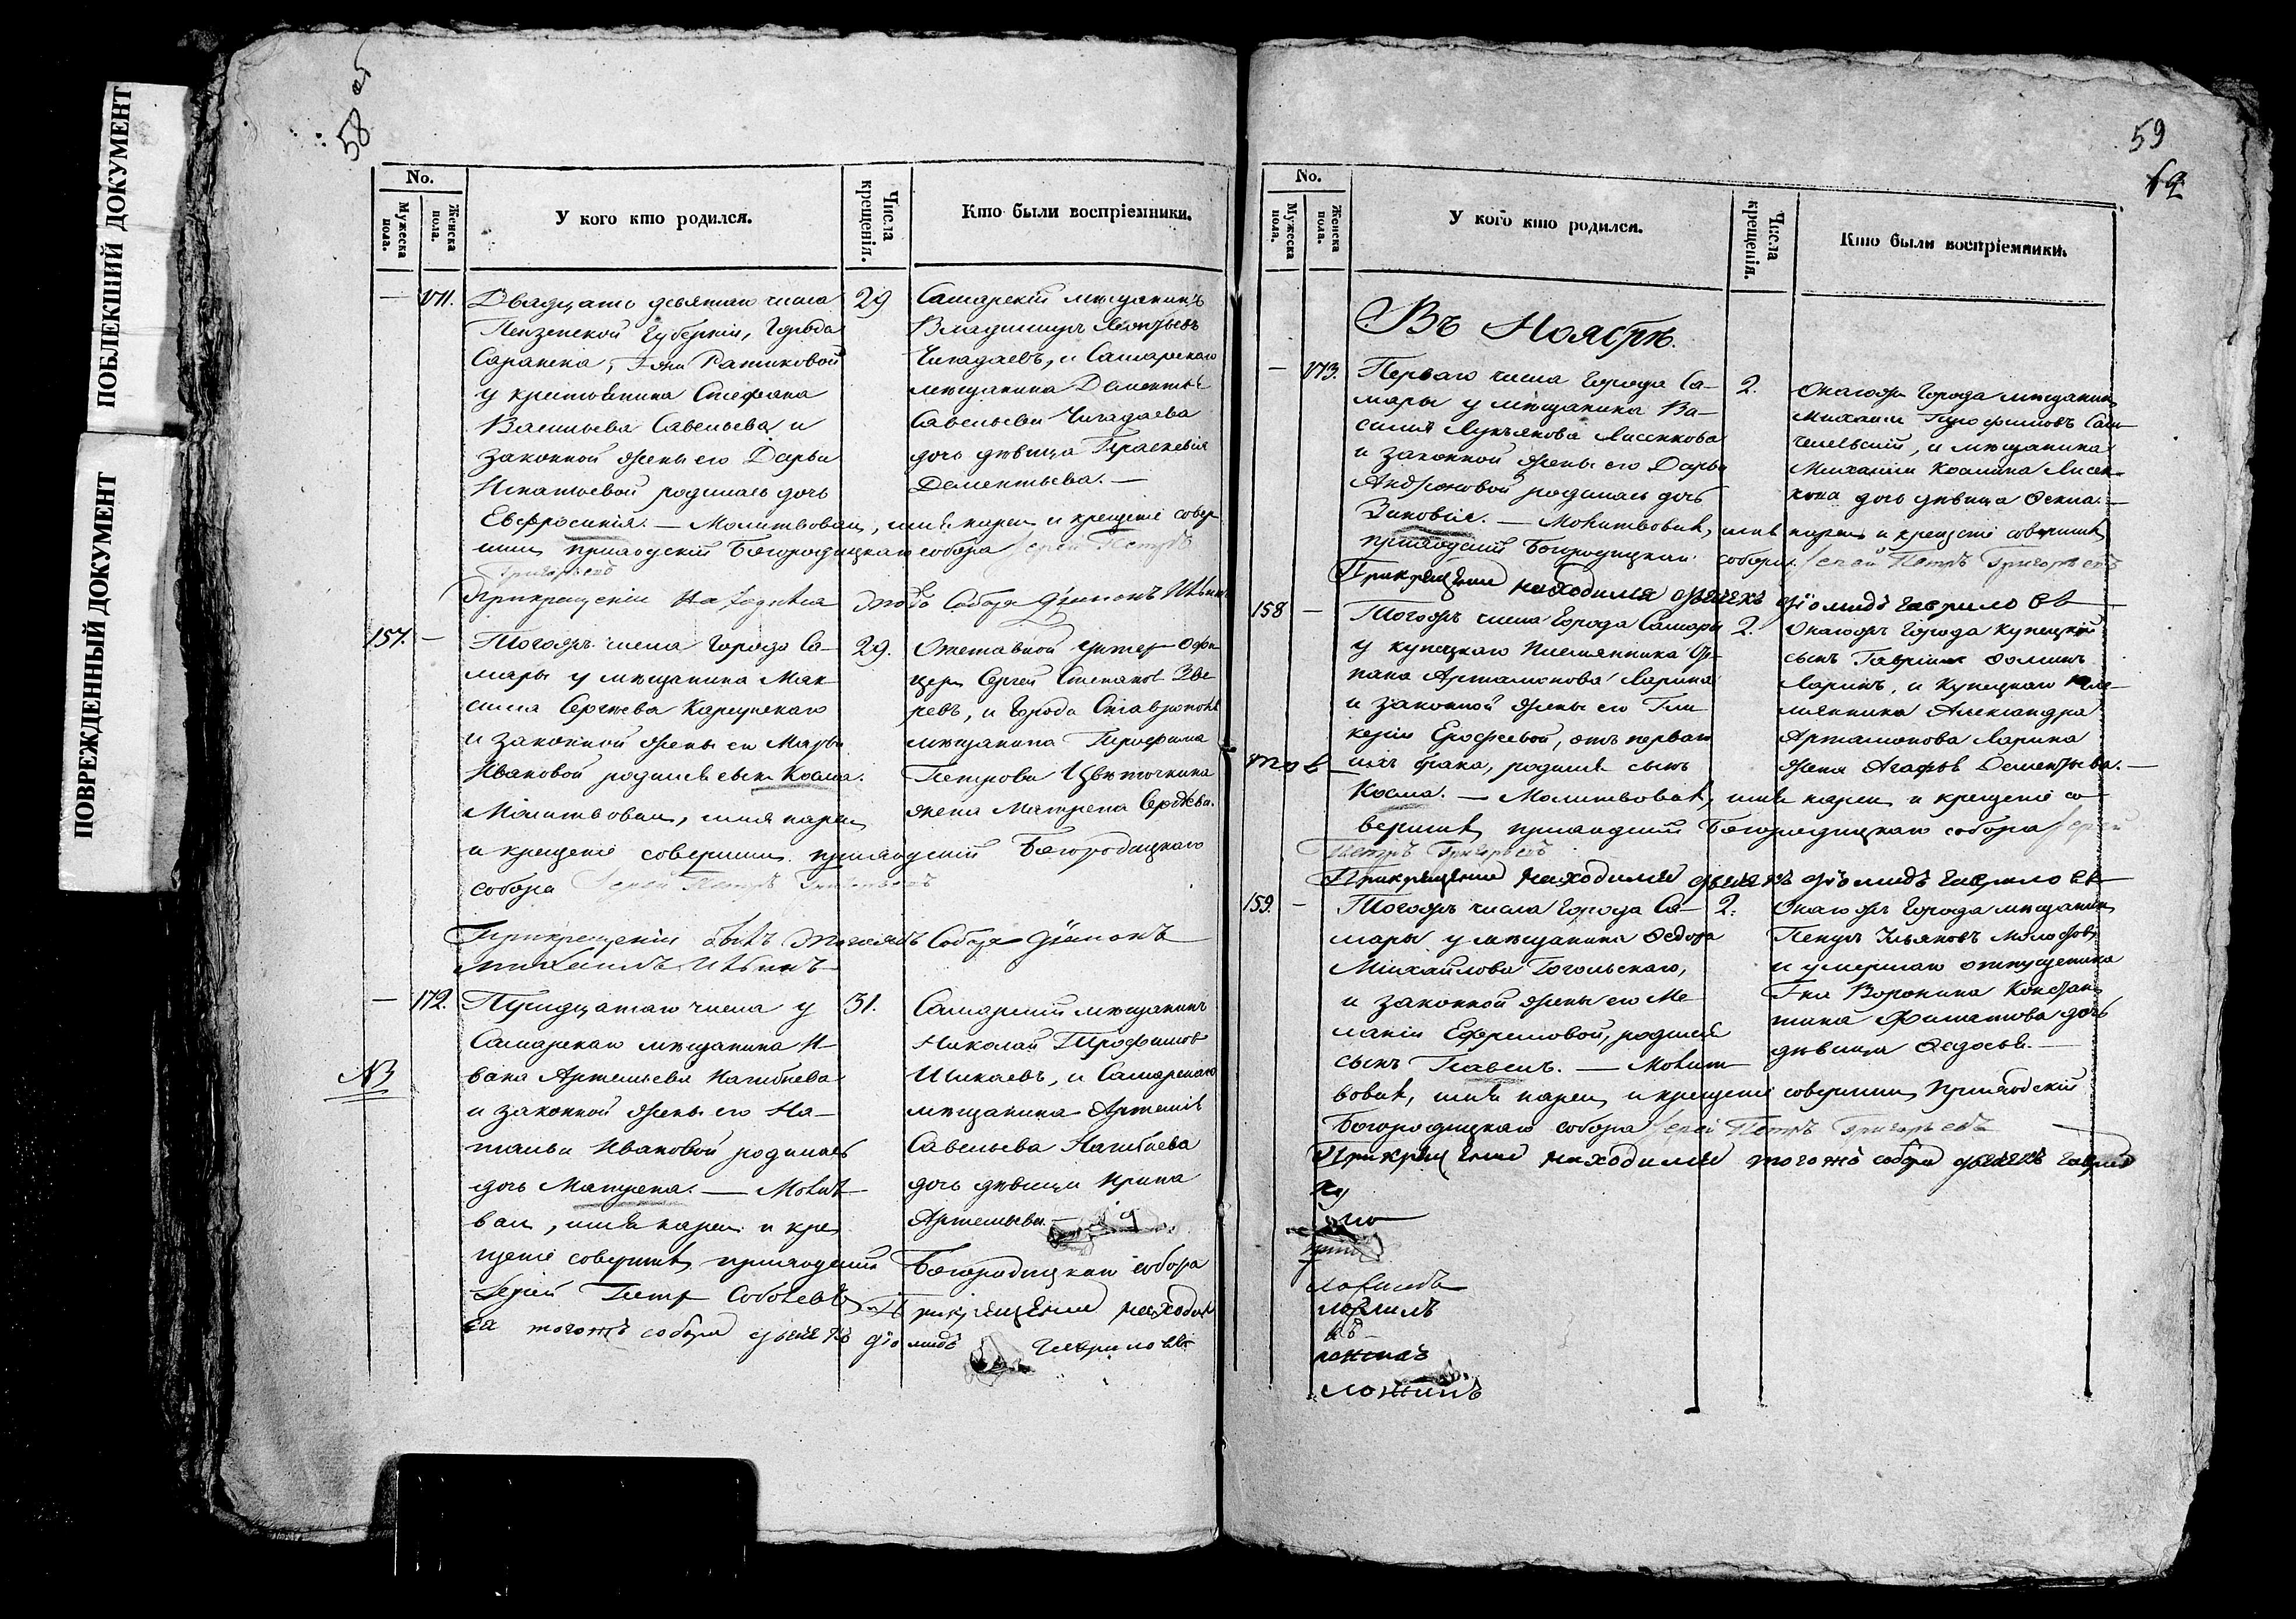 ПОБЛЕКШИЙ ДОКУМЕНТ
ПОВРЕЖДЕННЫЙ ДОКУМЕНТ
58 об
No.
Мужеска пола.
Женска пола.
У кого кто родился.
Числа крещенія.
Кто были воспріемники.
— 171.
Двадцать девятаго числа
Пензенской Губерніи, Города
Саранска, Г-жи
у крестьянина Стефана
Васильева Савельева и
законной жены его Дарьи
Игнатьевой родилась дочь
Евфросинія. — Молитвовал, имя нарек и крещеніе совер
шил приходскій Богородицкаго собора Іерей Петръ
Григорьевъ
29
Самарскій мещанинъ
Владимиръ Леонтьевъ
Чигадаевъ, и Самарскаго
мещанина Дементья
Савельева Чигадаева
дочь девица Параскевія
Дементьева. —
При крещеніи находился Собора Діаконъ
157. —
Тогожъ числа Города Са-
мары у мещанина Мак
сима Сергеева
и законной жены его Марьи
Ивановой родился сынъ Косма.
Молитвовал, имя нарек
и крещеніе совершил приходскій Богородицкаго
собора Іерей Петръ Григорьевъ
29.
Отставной унтер офи
цер Сергей Степанов Зве
ревъ, и Города Ставрополя
мещанина Трофима
Петрова Цветочкина
жена Матрена Сергеева.
При крещеніи былъ тогожъ Собора Діаконъ
— 172.
Тридцатаго числа у
Самарскаго мещанина И-
вана Артемьева Нагибаева
и законной жены его На-
тальи Ивановой родилась
дочь Матрена. — Молит
вал, имя нарек и кре
щеніе совершил приходскій Богородицкаго собора
Іерей Петр Соболевъ При крещеніи находил
ся тогожъ собора дьячекъ Діомидъ Гавриловъ
31.
Самарскій мещанинъ
Николай Трофимов
Шикаевъ, и Самарскаго
мещанина Артемія
Савельева Нагибаева
дочь девица Ирина
Артемьева. —
59
No.
Мужеска пола.
Женска пола.
У кого кто родился.
Числа крещенія.
Кто были воспріемники.
Въ Ноябрѣ.
— 173.
Перваго числа Города Са-
мары у мещанина Ва-
силія Лукьянова Лисенкова
и законной жены его Дарьи
Андроновой родилась дочь
Зиновія. — Молитвовал, имя нарек и крещеніе совершил
приходскій Богородицкаго собора Іерей Петръ Григорьевъ
2.
Онагожъ Города мещанин
Михаил Трофимовъ
и мещанина
Михаила Космина Лисен-
кова дочь девица Фекла. —
При крещеніи находился дьячекъ Діомидъ Гаврилов
158 —
Тогожъ числа Города Самары
у купецкаго племянника
Артамонова Ларина
и законной жены его Гли
керіи Ерофеевой, отъ перваго
ихъ брака, родился сынъ
Косма. — Молитвовал, имя нарек и крещеніе со-
вершил приходскій Богородицкаго собора Іерей
Петръ Григорьевъ
2.
Онагожъ Города купецкій
сынъ Гавриил Фомин
Ларинъ, и купецкаго пле-
мянника Александра
Артамонова Ларина
жена Агафья Дементьева. —
При крещеніи находился дьячекъ Діомидъ Гаврилов
159. —
Тогожъ числа Города Са-
мары у мещанина Федора
Михайлова Гогольскаго,
и законной жены его Ме-
ланіи Ефремовой, родился
сынъ Павелъ. — Молит
вовал, имя нарек и крещеніе совершил Приходскій
Богородицкаго собора Іерей Петръ Григорьевъ
2.
Онагожъ Города мещанин
Петръ Ильинъ
и умершаго отпущеника
Г-на Воронина Констан
тина Филатова дочь
девица Федосья. —
При крещеніи находился тогожъ собора дьячекъ Гаврил